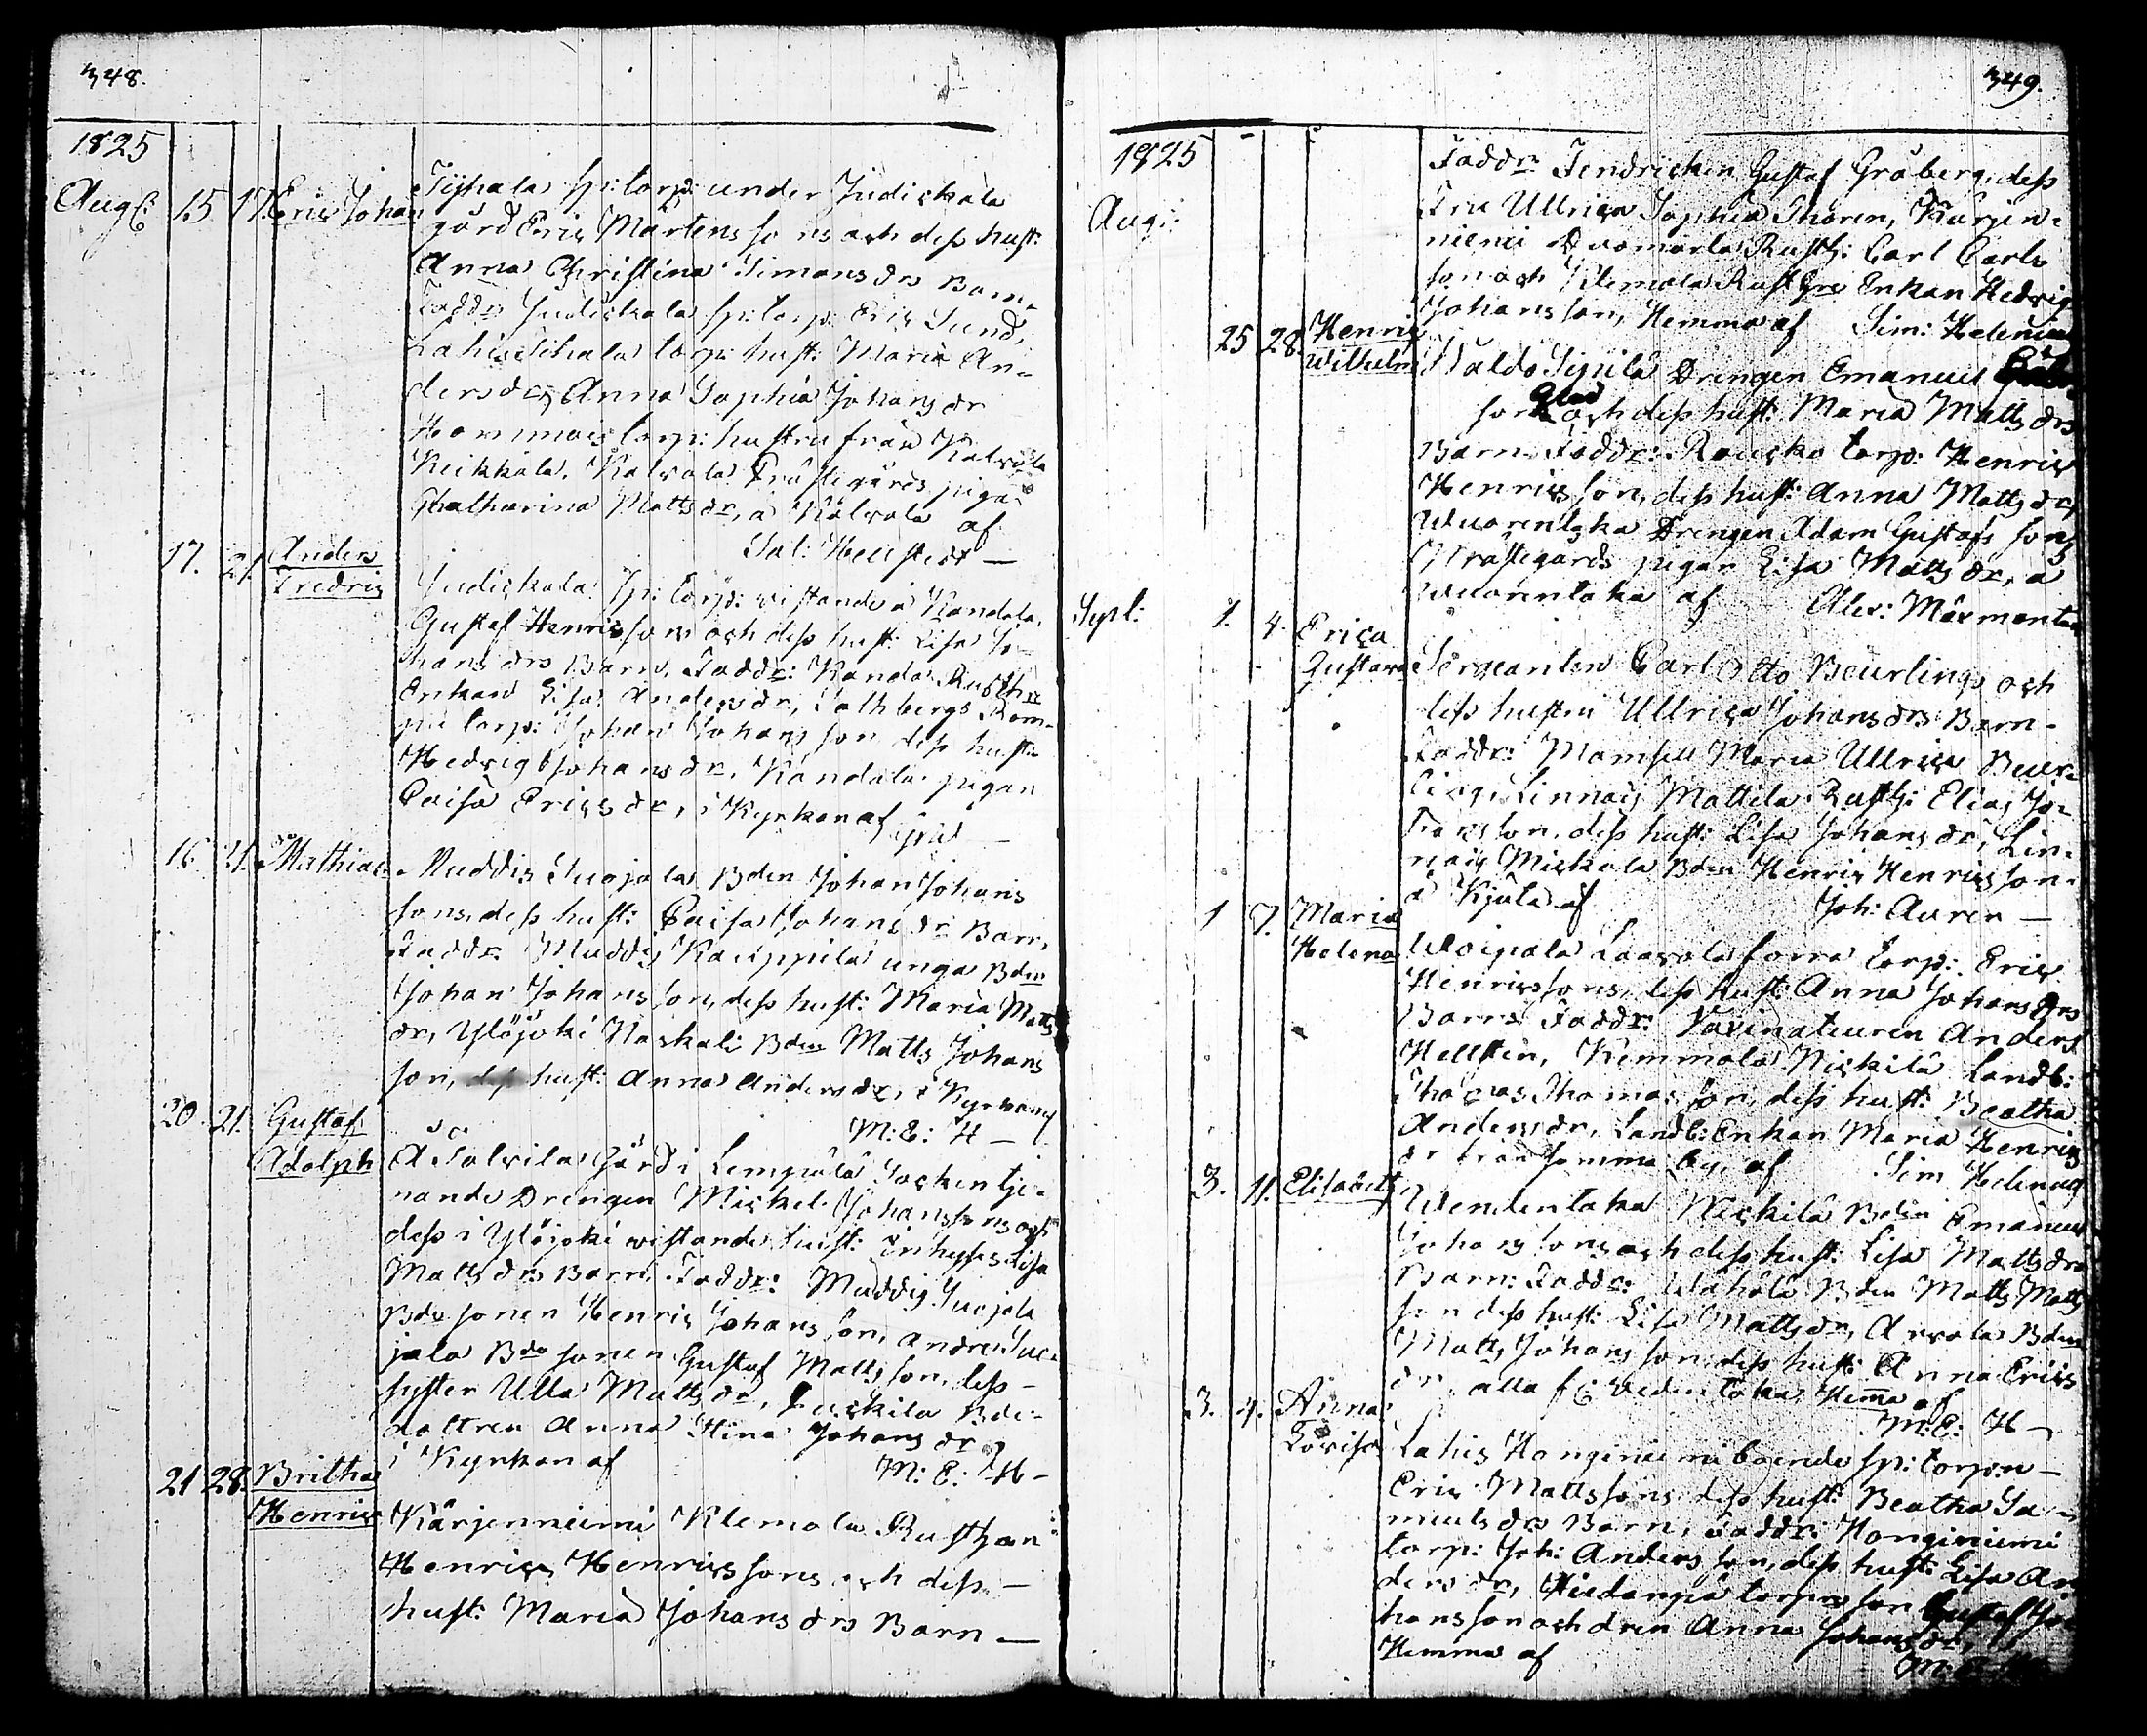 348.
1825
Aug: 15 17. Eric Johan
Typala sp: torp: under Judickala
gård Eric Mårtenssons och dess hust:
Anna Christina Simonsdrs Barn.
Faddr Judickala sp: torp: Eric Lund,
Lahis Sihala torp: hust: Maria An-
dersdr, Anna Sophia Johansdr
torp: hustru från Kalvola
Keikkala, Kalvola Prästegårds pigan
Catharina Mattsdr, a Kalvola af
Sal: Hellstedt —
17. 21. Anders
Fredric
Judickala Sp: torp: vistande i Kandala,
Gustaf Henricssons och dess hust: Lisa Jo-
hansdrs Barn, Faddr: Kanda Rusth:
Enkan Lisa Andersdr,
torp: Johan Johansson dess hust:
Hedvig Johansdr, Kandala pigan
Caisa Ericsdr, i Kyrkan af
16. 21. Mathias
Muddis Suojola Bden Johan Johans
sons, dess hust: Caisa Johansdr Barn,
Faddr: Muddis Kauppila unga Bden
Johan Johansson, dess hust: Maria Matts
dr, Ylöjoki Naskali Bden Matts Johans
son, dess hust: Anna Andersdr, i Kyrkan af
M: E: H —
20. 21. Gustaf
Adolph
Å Salvila Gård i Lempälä Socken tje-
nande Drengen Mickel Johanssons och
dess i Ylöjoki vistande hust: Inhyses Lisa
Mattsdrs Barn. Faddr: Muddis Suojola
Bde sonen Henric Johansson, andre Suo-
jola Bde sonen Gustaf Mattsson, dess
syster Ulla Mattsdr, Bde-
dottren Anna Stina Johansdr
i Kyrkan af M: E: H —
21 28. Britha
Henrica
Kärjenniemi Klemola Rusth:
Henric Henricssons och dess —
hust: Maria Johansdrs Barn —
349.
1825
Aug:
Faddr Fendricken Gustaf Gråberg, dess
Fru Ullrica Sophia Thoren, Kärjen-
niemi Rusth: Carl Carls
son och Klemola Rusth: Enkan Hedvig
Johansson, Hemma af Sim: Helenius
25 28. Henric
Wilhelm
Drengen Emanuel
Glad
och dess hust: Maria Mattsdrs
Barn. Faddr: Rausko torp: Henric
Henricsson, dess hust: Anna Mattsdr,
Wuorentaka Drengen Adam Gustafsson,
Prästegårds pigan Lisa Mattsdr, a
Wuorentaka af Alex: Maxmontan
Sept: 1. 4. Erica
Gustava
Sergeanten Carl Otto Beurlings och
dess hustru Ullrica Johansdrs Barn —
Faddr: Mamsell Maria Ullrica Beur-
ling, Linnais Mattila Rusth: Elias Jo-
hansson, dess hust: Lisa Johansdr, Lin-
nais Mickola Bden Henric Henricsson
a Kjula af Joh: Auren —
1 7. Maria
Helena
Woipala Laavola torp: Eric
Henricssons, dess hust: Anna Johansdrs
Barn. Faddr: Vaxinateuren Anders
Hellsten, Kemmola Nickilä Landb:
Thomas Thomasson, dess hust: Beatha
Andersdr, Landb: Enkan Maria Henrics
dr från samma by, af Sim Helenius
3. 11. Elisabeth
Wedentaka Nickilä Bden Emanuel
Johanssons och dess hust: Lisa Mattsdrs
Barn: Faddr: Wahala Bden Matts Matts
son dess hust: Lisa Mattsdr, Arvola Bden
Matts Johansson, dess hust: Anna Erics
dr, alla fr: Wedentaka, Hemma af
M: E: H —
3. 4. Anna
Lovisa
Lahis Honginiemi boende sp: torpn —
Eric Mattssons dess hust: Beatha Sa-
muelsdrs Barn, Faddr: Honginiemi
torp: Joh: Andersson, dess hust: Lisa An
dersdr, Hiedanpä torp: son Gustaf Jo
hansson och dren Anna Johansdr,
Hemma af M: E: H